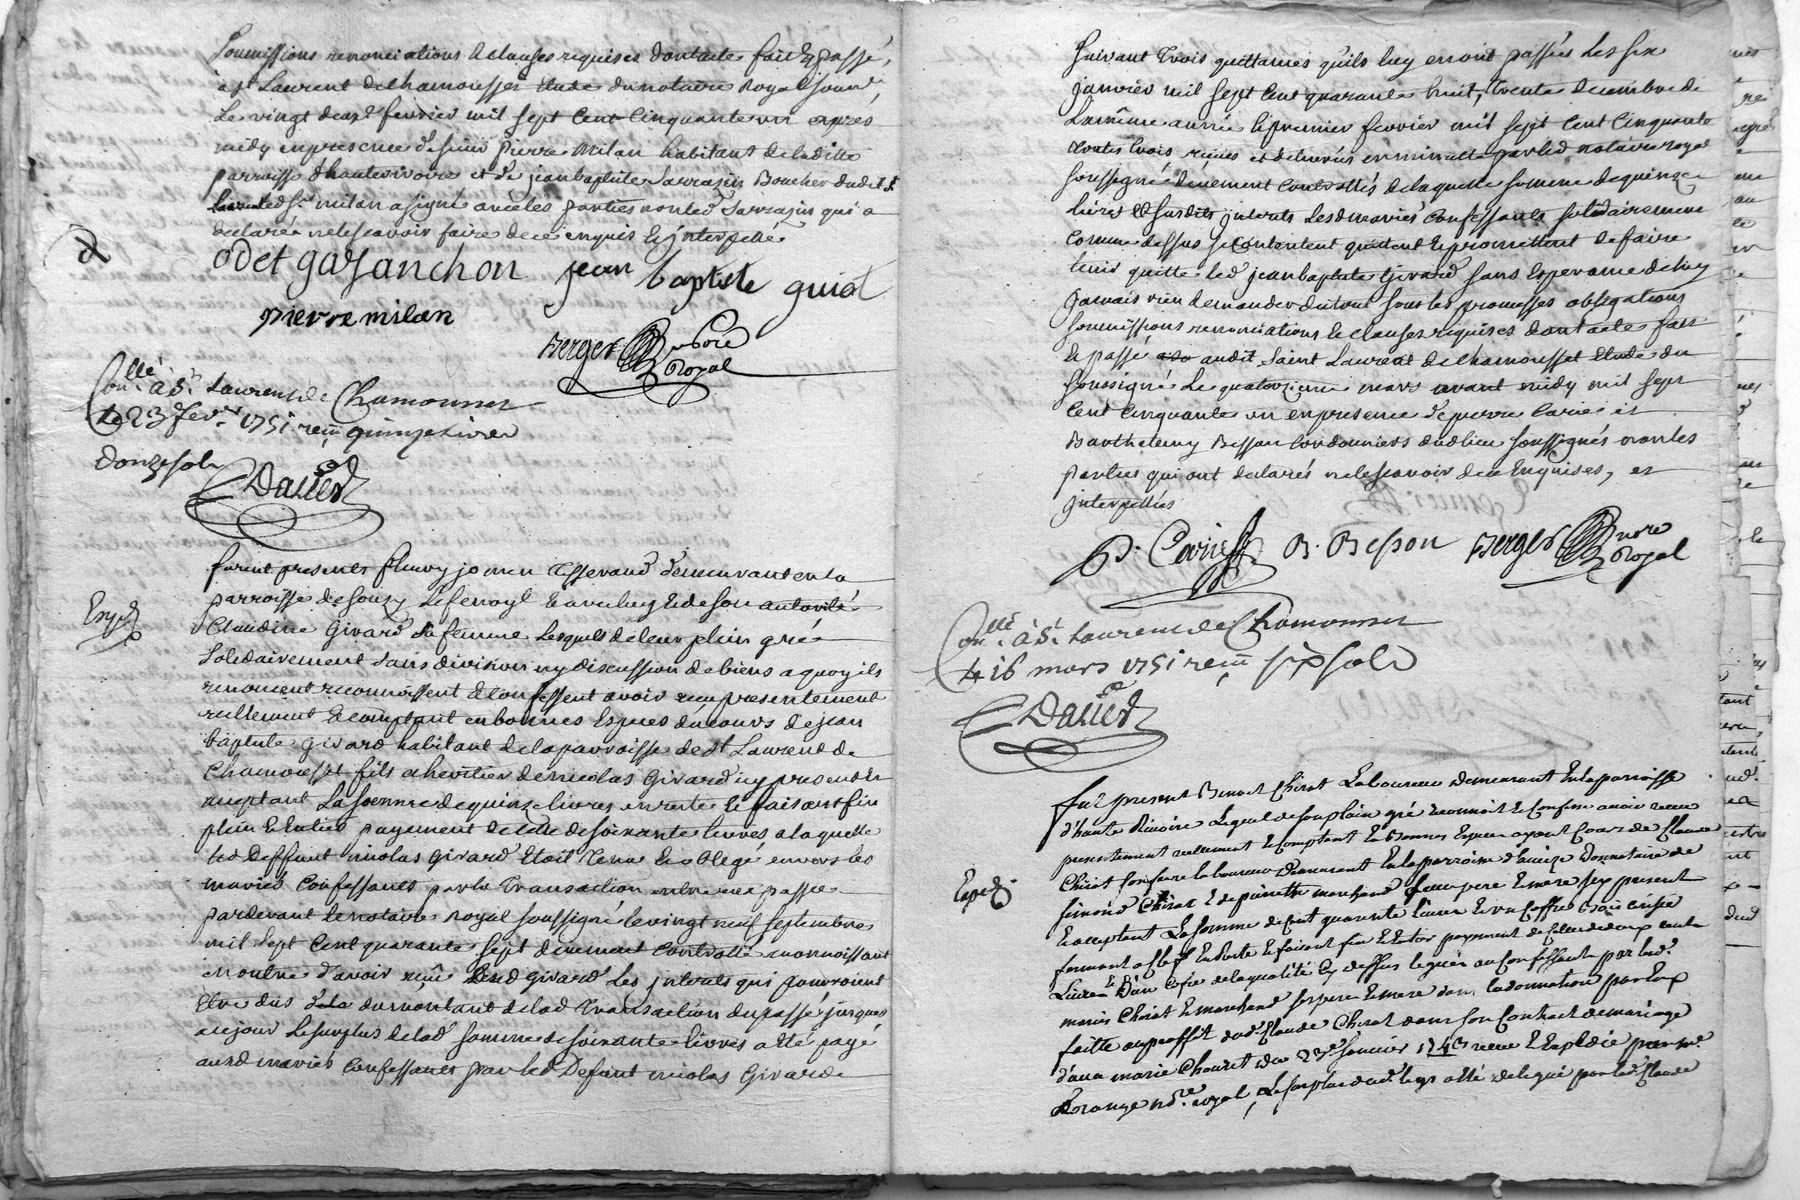 soumissions renonciations & clauses requises dont acte fait & passé,
a st Laurent de chamousset etude du notaire royal soussé
Le vingt deux fevrier mil sept cent cinquante un apres
midy en presence de sieur pierre milan habitant de laditte
parroisse d'hauterivoire et de jean baptiste sarrazin Boucher dudit st
milan a signé avec les parties non led sarrazin qui a
declaré ne le scavoir faire de ce enquis & interpellé
odet gasanchon jean baptiste guiot
pierre milan
Berger no.re Royal
Con.llé a St. Laurent de Chamousset
le 23 fev.er 1751 recu quinze livres
douze sols
Daned
furent presents fleury jomen Tisserand demeurant en la
parroisse de souzy & avec luy & de son autorité
Claudine Girard sa femme lesquels de leur plein gré
solidairement sans division ny discussion de biens a quoy ils
renoncent reconnoissent & confessent avoir reçu presentement
reellement & comptant en bonnes especes du cours de jean
baptiste girard habitant de la parroisse de st Laurent de
Chamousset fils & heritier de nicolas Girard icy present &
acceptant La somme de quinze livres en reste & faisant fin
plein & entier payement de celle de soixante livres a laquelle
led Deffunt nicolas Girard etoit tenu & obligé envers les
mariés confessants par la Transaction entre eux passée
pardevant le notaire royal soussigné le vingt neuf septembre
mil sept cent quarante sept duement controllé reconnoissant
en outre d'avoir reçu dud Girard les interets qui pourroient
etre dus du montant de lad Transaction du passé jusques
a ce jour Le surplus de lad somme de soixante livres a été payé
auxd mariés confessants par led Defunt nicolas Girard
Exped
suivant trois quittances qu'ils luy en ont passées les six
janvier mil sept cent quarante huit, trente decembre de
La même année & premier fevrier mil sept cent cinquante
toutes trois reçues et delivrées en minutte par led notaire royal
soussigné duement controllés de laquelle somme de quinze
livres & susdits interets lesd mariés confessants solidairement
comme dessus se contentent quittent & promettent de faire
tenir quitte led jean baptiste Girard sans esperance de luy
jamais rien demander du tout sous les promesses obligations
soumissions renonciations & clauses requises dont acte fait
& passé audit Saint Laurent de chamousset Etude du
soussigné Le quatorzieme mars avant midy mil sept
cent cinquante un en presence de pierre Cariés et
Barthelemy Besson Cordonniers dudlieu soussignés non les
parties qui ont declarés ne le scavoir de ce Enquises, et
interpellées
P. Cariés B. Besson Berger no.re Royal
Con.llé à St. Laurent de Chamousset
le 16 mars 1751 recu six sols
Daned
fut present Benoit Chirat Laboureur demeurant En la parroisse
d'haute Rivoire Lequel de son plein gré reconnoit & Confesse avoir receu
presentement reellement & Comptant En Bonnes Especes ayant Cours de Claude
Chirat son frere laboureur demeurant En la parroisse d'aveize Donnataire de
Simond Chirat & de pierrette marchand ses pere & mere icy present
& acceptant La somme de cent quarante Livres & un Coffre bois cerisier
fermant a Clef En reste & faisant fin & Entier payement de Celle de deux cents
Livres & d'un Cofre de la qualité Cy dessus legués au Confessant par led.
mariés Chirat & marchand ses pere & mere dans la donnation par Eux
faitte au proffit dud. Claude Chirat dans son Contract de mariage
d'avec marie Chouret du 23e janvier 1743 receu & Expedié par me.
Dorange n.re royal, Le surplus dud. legs a été delegué par led. Claude
Exped.